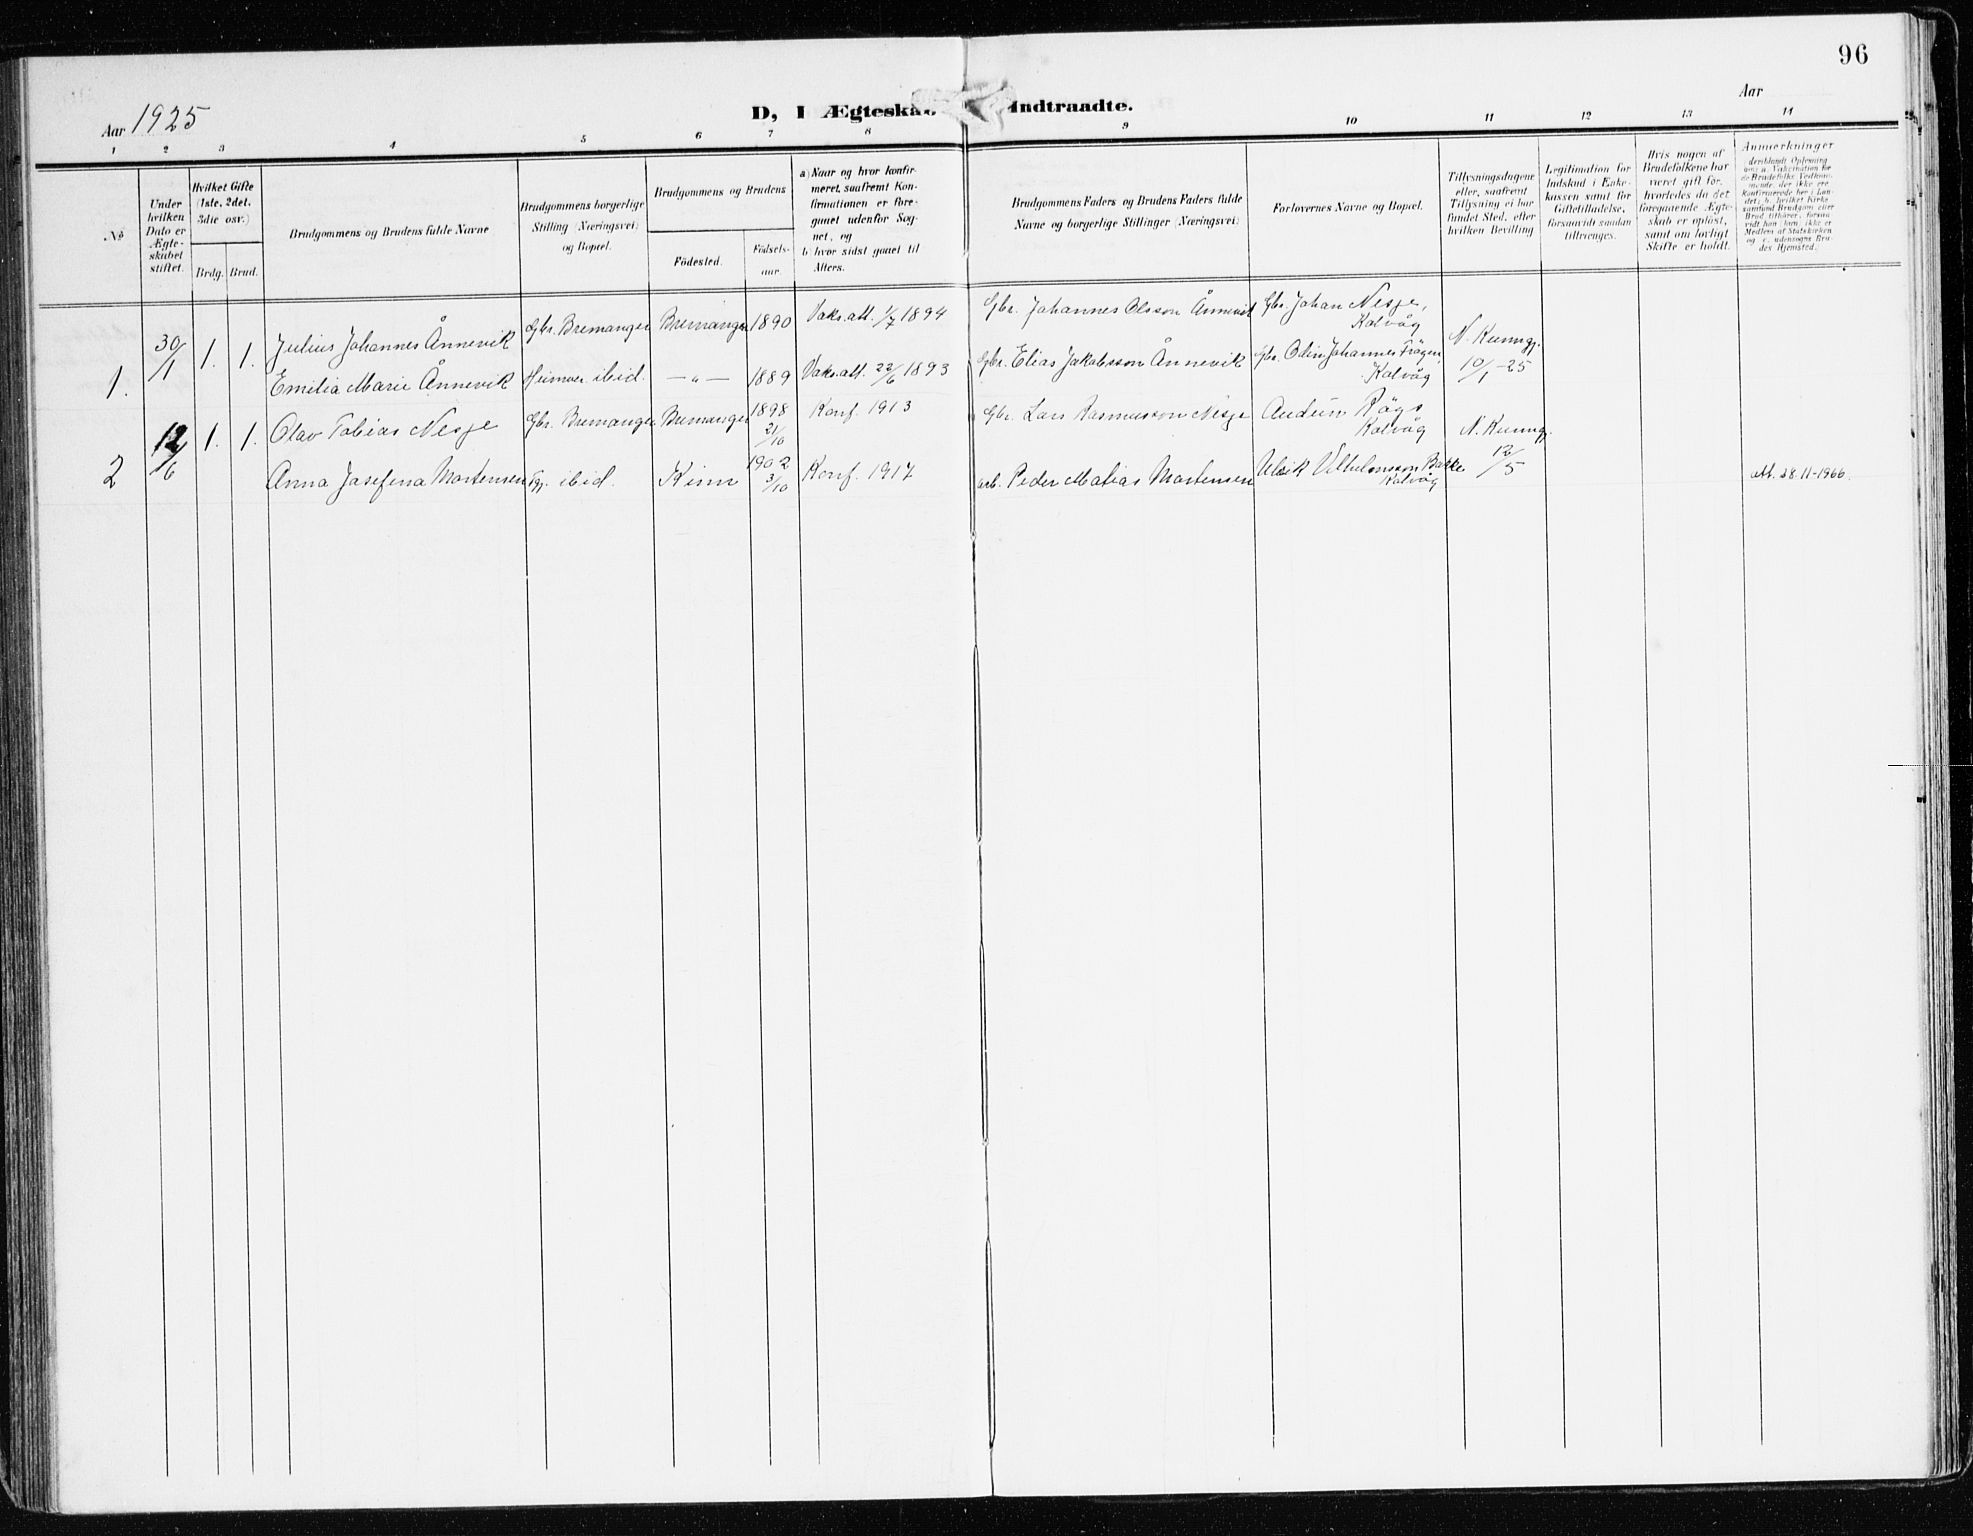 96
Aar 1925
D, I Ægteskab Indtraadte.
Aar
1 2 3 4 5 6 7 8 9 10 11 12 13 14
No
Under hvilken Dato er Ægteskabet stiftet.
Hvilket Gifte (1ste, 2det, 3die osv.)
Brdg. Brud.
Brudgommens og Brudens fulde Navne
Brudgommens borgerlige Stilling (Næringsvei) og Bopæl.
Brudgommens og Brudens
Födested.
Födsels-aar.
a) Naar og hvor konfirmeret, saafremt Konfirmationen er foregaaet udenfor Sognet, og
b) hvor sidst gaaet til Alters.
Brudgommens Faders og Brudens Faders fulde Navne og borgerlige Stillinger (Næringsvei)
Forlovernes Navne og Bopæl.
Tillysningsdagene eller, saafremt Tillysning ei har fundet Sted, efter hvilken Bevilling
Legitimation for Indskud i Enkekassen samt for Giftetilladelse, forsaavidt saadan tiltrænges.
Hvis nogen af Brudefolkene har været gift för, hvorledes da det foregaaende Ægteskab er oplöst, samt om lovligt Skifte er holdt.
Anmerkninger
deriblandt Oplysning om: a. Vakcination for de Brudefolks Vedkommende, der ikke ere konfirmerede her i Landet; b. hvilket Kirkesamfund Brudgom eller Brud tilhörer, forsaavidt han (hun) ikke er Medlem af Statskirken og c. udensogns Brudes Hjemsted.
1. 30/1 1. 1. Julius Johannes Ånnevik Gbr. Bremanger Bremanger 1890 Vaks.att. 1/7 1894 Gbr. Johannes Olsson Ånnevik Gbr. Johan Nesje, Kalvåg N. Kunngj. 10/1-25
Emilia Marie Ånnevik Heimver. ibid. —„— 1889 Vaks.att. 22/6 1893 Gbr. Elias Jakobsson Ånnevik Gbr. Odin Johannes Frøgen, Kalvåg
2 12/6 1. 1. Olav Tobias Nesje Gbr. Bremanger Bremanger 1898 21/10 Konf. 1913 Gbr. Lars Rasmusson Nesje Audun Kalvåg N. Kunngj. 12/5
Anna Josefina Mortensen ibid. Kinn 1902 3/10 Konf. 1917 arb. Peder Matias Mortensen Ulrik Vilhelmsson Bakke Kalvåg att. 28.11-1966.